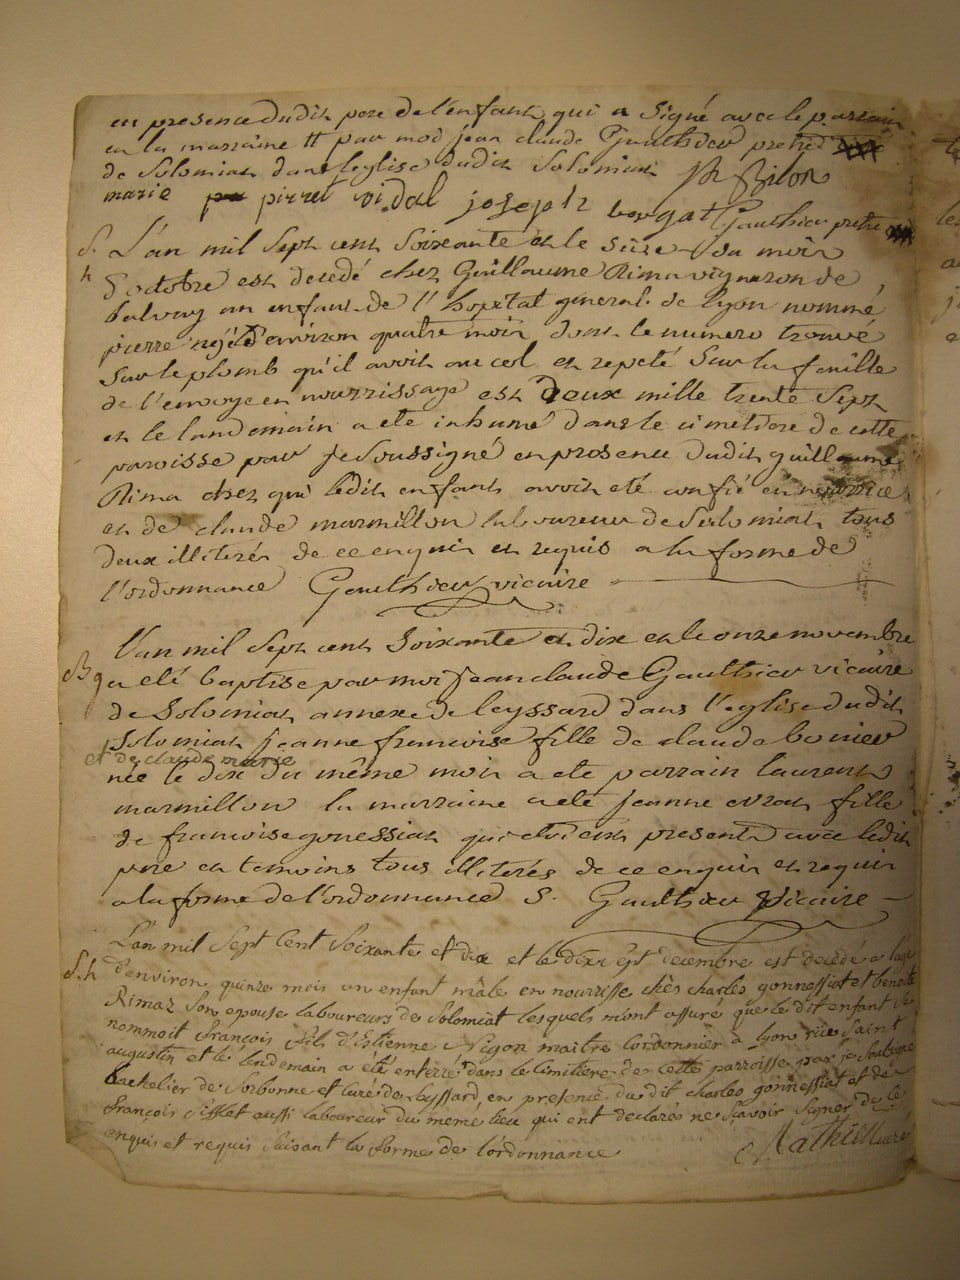 en presence dudit pere de l'enfant qui a signé avec le parrain
et la marraine tt par moi jean claude Gauthier pretre
de Solomiat dans l'eglise dudit Solomiat
marie pierret vidal joseph bergat Gauthier pretre
S. L'an mil sept cent soixante et le seize du mois
h d'octobre est decedé chez Guillaume Rima vigneron de
balvay un enfant de l'hopital general de lyon nommé
pierre agé d'environ quatre mois dont le numero trouvé
sur le plomb qu'il avoit au col et repeté sur la feuille
de l'envoye en nourrissage est deux mille trente sept
et le landemain a eté inhumé dans le cimetiere de cette
paroisse par je soussigné en presence dudit guillaume
Rima chez qui ledit enfant avoit eté confié en nourrice
et de claude marmillon laboureur de Solomiat tous
deux illiterés de ce enquis et requis a la forme de
l'ordonnance Gauthier vicaire
L'an mil sept cent soixante et dix et le onze novembre
B a eté baptise par moi jean claude Gauthier vicaire
de Solomiat annexe de leyssard dans l'eglise dudit
Solomiat jeanne francoise fille de claude bonier
et de claude marie
née le dix du même mois a eté parrain laurent
marmillon la marraine a eté jeanne evrat fille
de francoise gonessiat qui etoient present avec ledit
pere et temoins tous illiterés de ce enquis et requis
a la forme de l'ordonnance S. Gauthier vicaire
L'an mil sept cent soixante et dix et le dix sept decembre est decédé a l'age
S.h d'environ quinze mois un enfant mâle en nourrisse chès charles gonnessiat et benoite
Rimaz son epouse laboureurs de Solomiat lesquels m'ont assuré que le dit enfant se
nommoit françois fils d'Estienne Nigon maitre cordonnier à Lyon rüe Saint
augustin et le lendemain a été enterré dans le cimitiere de cette parroisse par je soubsigné
bachelier de Sorbonne et curé de Leyssard en presence du dit charles gonnessiat et de
françois Sifflet aussi laboureur du même lieu qui ont declarés ne sçavoir signer de ce
enquis et requis suivant la forme de l'ordonnance Mathieu curé